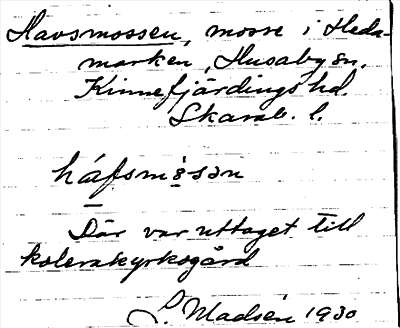 Havsmossen, mosse i Heda-
marken, Husaby sn,
Kinnefjärdings hd.
Skarab. l.
háfsmåsan
Där var uttaget till
kolerakyrkogård
S. Madsén 1930